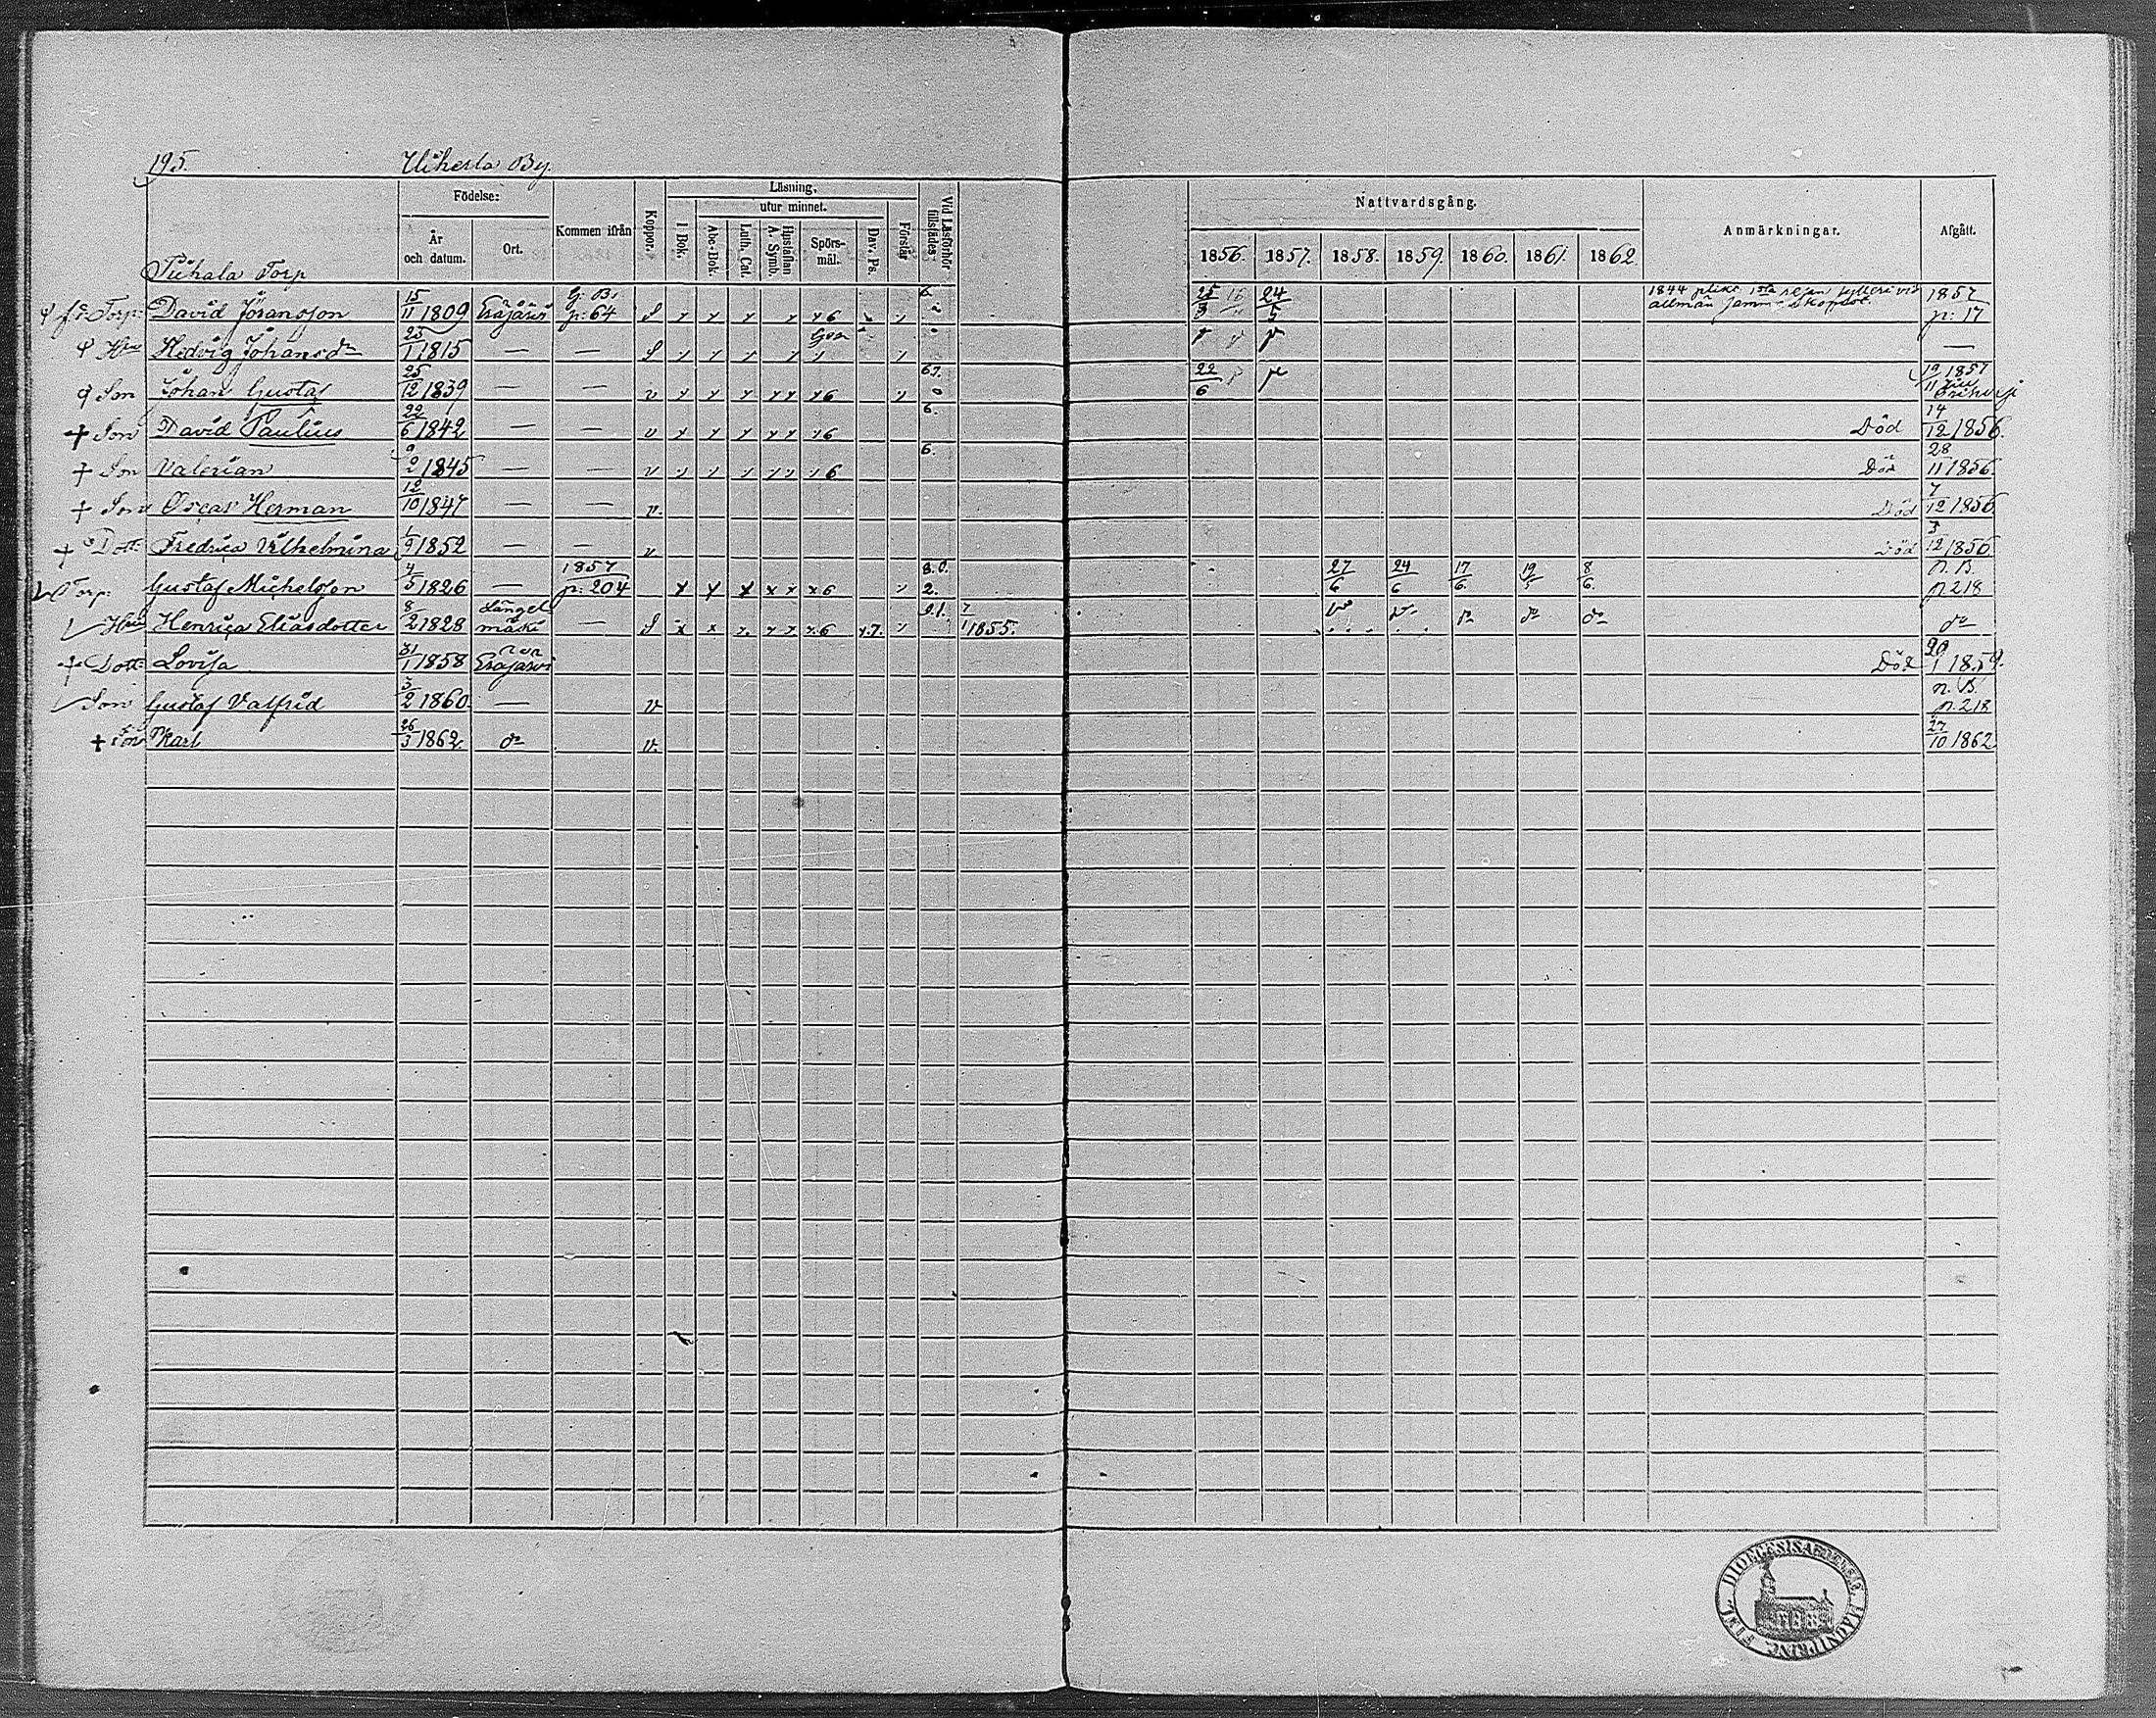 195. Uiherla By.
Födelse: År och datum. Ort. Kommen ifrån Koppor. Läsning, I Bok. utur minnet. Abc-Bok. Luth. Cat. Hustaflan A. Symb. Spörs-mål. Dav. Ps. Förstår Vid Läsförhör tillstädes Nattvardsgång. 1856. 1857. 1858. 1859. 1860. 1861. 1862. Anmärkningar. Afgått.
Puhala Torp
f.d. Torp: David Jöransson 15/11 1809 Eräjärvi G. B. p: 64 S 6 6. 25/3 24/5 1844 plikt 1sta resan fylleri vid allmän 1857 p: 17
Hu Hedvig Johansdr 25/1 1815 — — S —
Son Johan Gustaf 25/12 1839 — — v 6 67. 22/6 19/11 1857
+ Son David Paulius 22/6 1842 — — v 6 6. Död 14/12 1856.
+ Son Valerian 9/2 1845 — — v 6 6. Död 28/11 1856.
+ Son Oscar Herman 12/10 1847 — — v. Död 7/12 1856
+ Dott: Fredrica Vilhelmina 1/9 1852 — — v Död 3/12 1856.
Torp: Gustaf Michelsson 4/5 1826 — 1857 p: 204 x x x x x x 6 8.0. 2. 27/6 24/6 17/6. 8/6. n. B. p. 218
Hu Henrica Eliasdotter 8/2 1828 Längelmäki — S x x x. x x x. 6 x.7. 7/1 1855. do
+ Dott: Lovisa 31/1 1858 Eräjärvi Död 20/1 1859.
Son Gustaf Valfrid 3/2 1860 — v. n. B. p. 218
+ Son Karl 26/3 1862. do v. 27/10 1862
DIOECESIS ABOENSIS MAGNI PRINC. FINL.